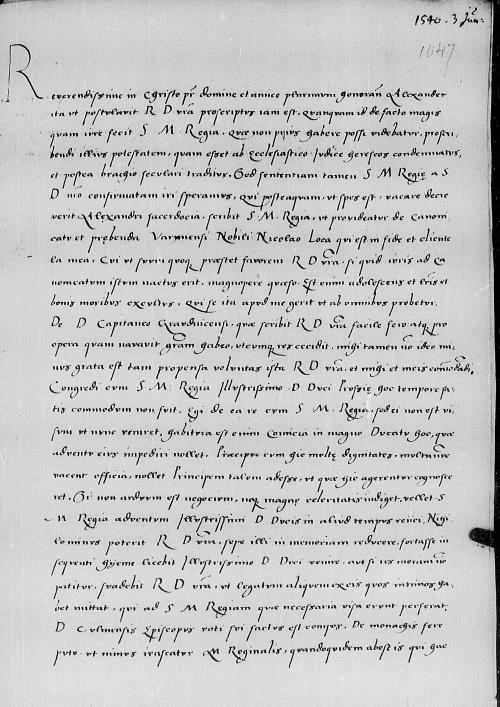 1540. 3 Jun:
1047
Reverendissime in Christo pr domine et amice plurimum honoran Alexander
ita ut postulavit R D vra proscriptus iam est, quanquam id de facto magis
quam iure fecit S M. Regia, quae non prius habere posse videbatur, proscri,
bendi illius potestatem, quam esset ab Ecclesiastico Judice hereseos condemnatus,
et postea brachio seculari traditus, Sed sententiam tamen S M Regię a S
D nro confirmatam iri speramus, qui posteaquam, ut spes est, vacare decre
verit Alexandri sacerdocia, scribit S. M. Regia, ut provideatur de Canoni
catu et prębenda Varmiensi Nobili Nicolao Loca qui est in fide et cliente
la mea, Cui ut suum quoque praestet favorem R D vra, si quid iuris ad Ca
nonicatum istum nactus erit, magnopere quaeso. Est enim adolescens et lris et
bonis moribus excultus, qui se ita apud me gerit ut ab omnibus probetur.
De D Capitaneo Graudnicensi, quae scribit R D vra facile fero, atque pro
opera quam navavit gram habeo, utcumque res cecidit, mihi tamen non ideo mi,
nus grata est tam propensa voluntas ista R D vrae, et mihi et meis comodandi,
Congredi cum S M: Regia Illustrissimo D Duci Prussię hoc tempore sa,
tis commodum non fuit, Egi de ea re cum S M. Regia, sed ei non est vi,
sum ut nunc veniret, habitura est enim Comicia in magno Ducatu hoc, quae
adventu eius impediri nollet, Praecipue cum hic multę dignitates, multaque
vacent officia, nollet Principem talem adesse, ut quae hic agerentur cognosce
ret, Si non arduum est negocium, neque magnę celeritatis indiget, vellet S
M Regia adventum Illustrissimi D Ducis in aliud tempus reiici, Nihi
lominus poterit R D vra, sepe illi in memoriam reducere, fortasse in
sequenti hyeme licebit Illustrissimo D Duci venire, aut si res moram non
patitur, suadebit R D vra, ut legatum aliquem ex eis quos intimos ha,
bet mittat, qui ad S M Regiam quae necessaria visa erunt perferat,
D Culmensis Episcopus voti sui factus est compos, De monachis fere
puto, ut minus irascatur M Reginalis, quandoquidem abest is qui hac